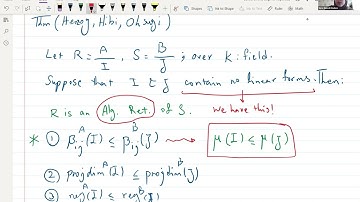 Thm (Herzog, Hibi, Ohsugi)
Let R = A/I , S = B/J ; over K: field.
Suppose that I & J contain no linear forms. Then:
R is an Alg. Ret. of S. we have this!
* ① β_ij^A (I) ≤ β_ij^B (J) ⇝ μ(I) ≤ μ(J)
② projdim^A (I) ≤ projdim^B (J)
③ reg^A (I) ≤ reg^B (J)